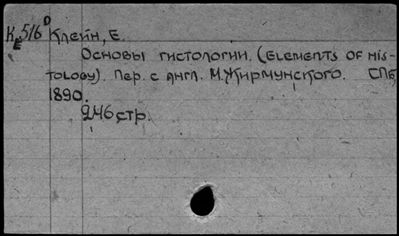 КЕ 516 D Клейн, Е.
Основы гистологии. (Elements of his-
tology). Пер. с англ. М. Жирмунского. СПб,
1890.
246 стр.